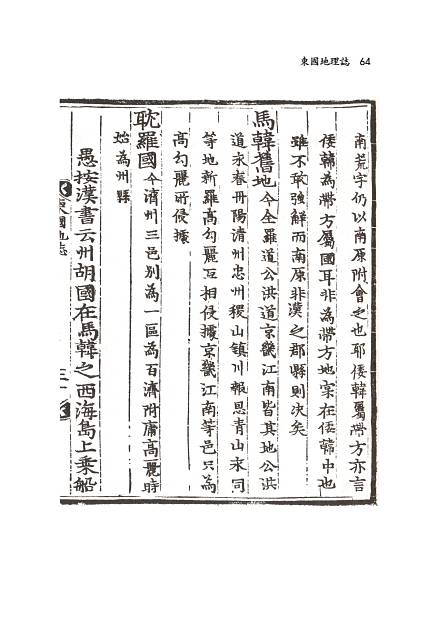 東國地理誌 64
南荒字仍以南原附會之也耶倭韓屬帶方亦言
倭韓為帶方屬國耳非為帶方地宲在倭韓中也
雖不敢強觧而南原非漢之郡縣則决矣
馬韓舊地今全羅道公洪道京畿江南皆其地公洪
道永春丹陽清州忠州稷山鎮川報恩青山永同
等地新羅高勾麗互相侵據京畿江南等邑只為
高勾麗所侵據
耽羅國今濟州三邑別為一區為百濟附庸高麗時
始為州縣
愚按漢書云州胡國在馬韓之西海島上乗船
東國地誌